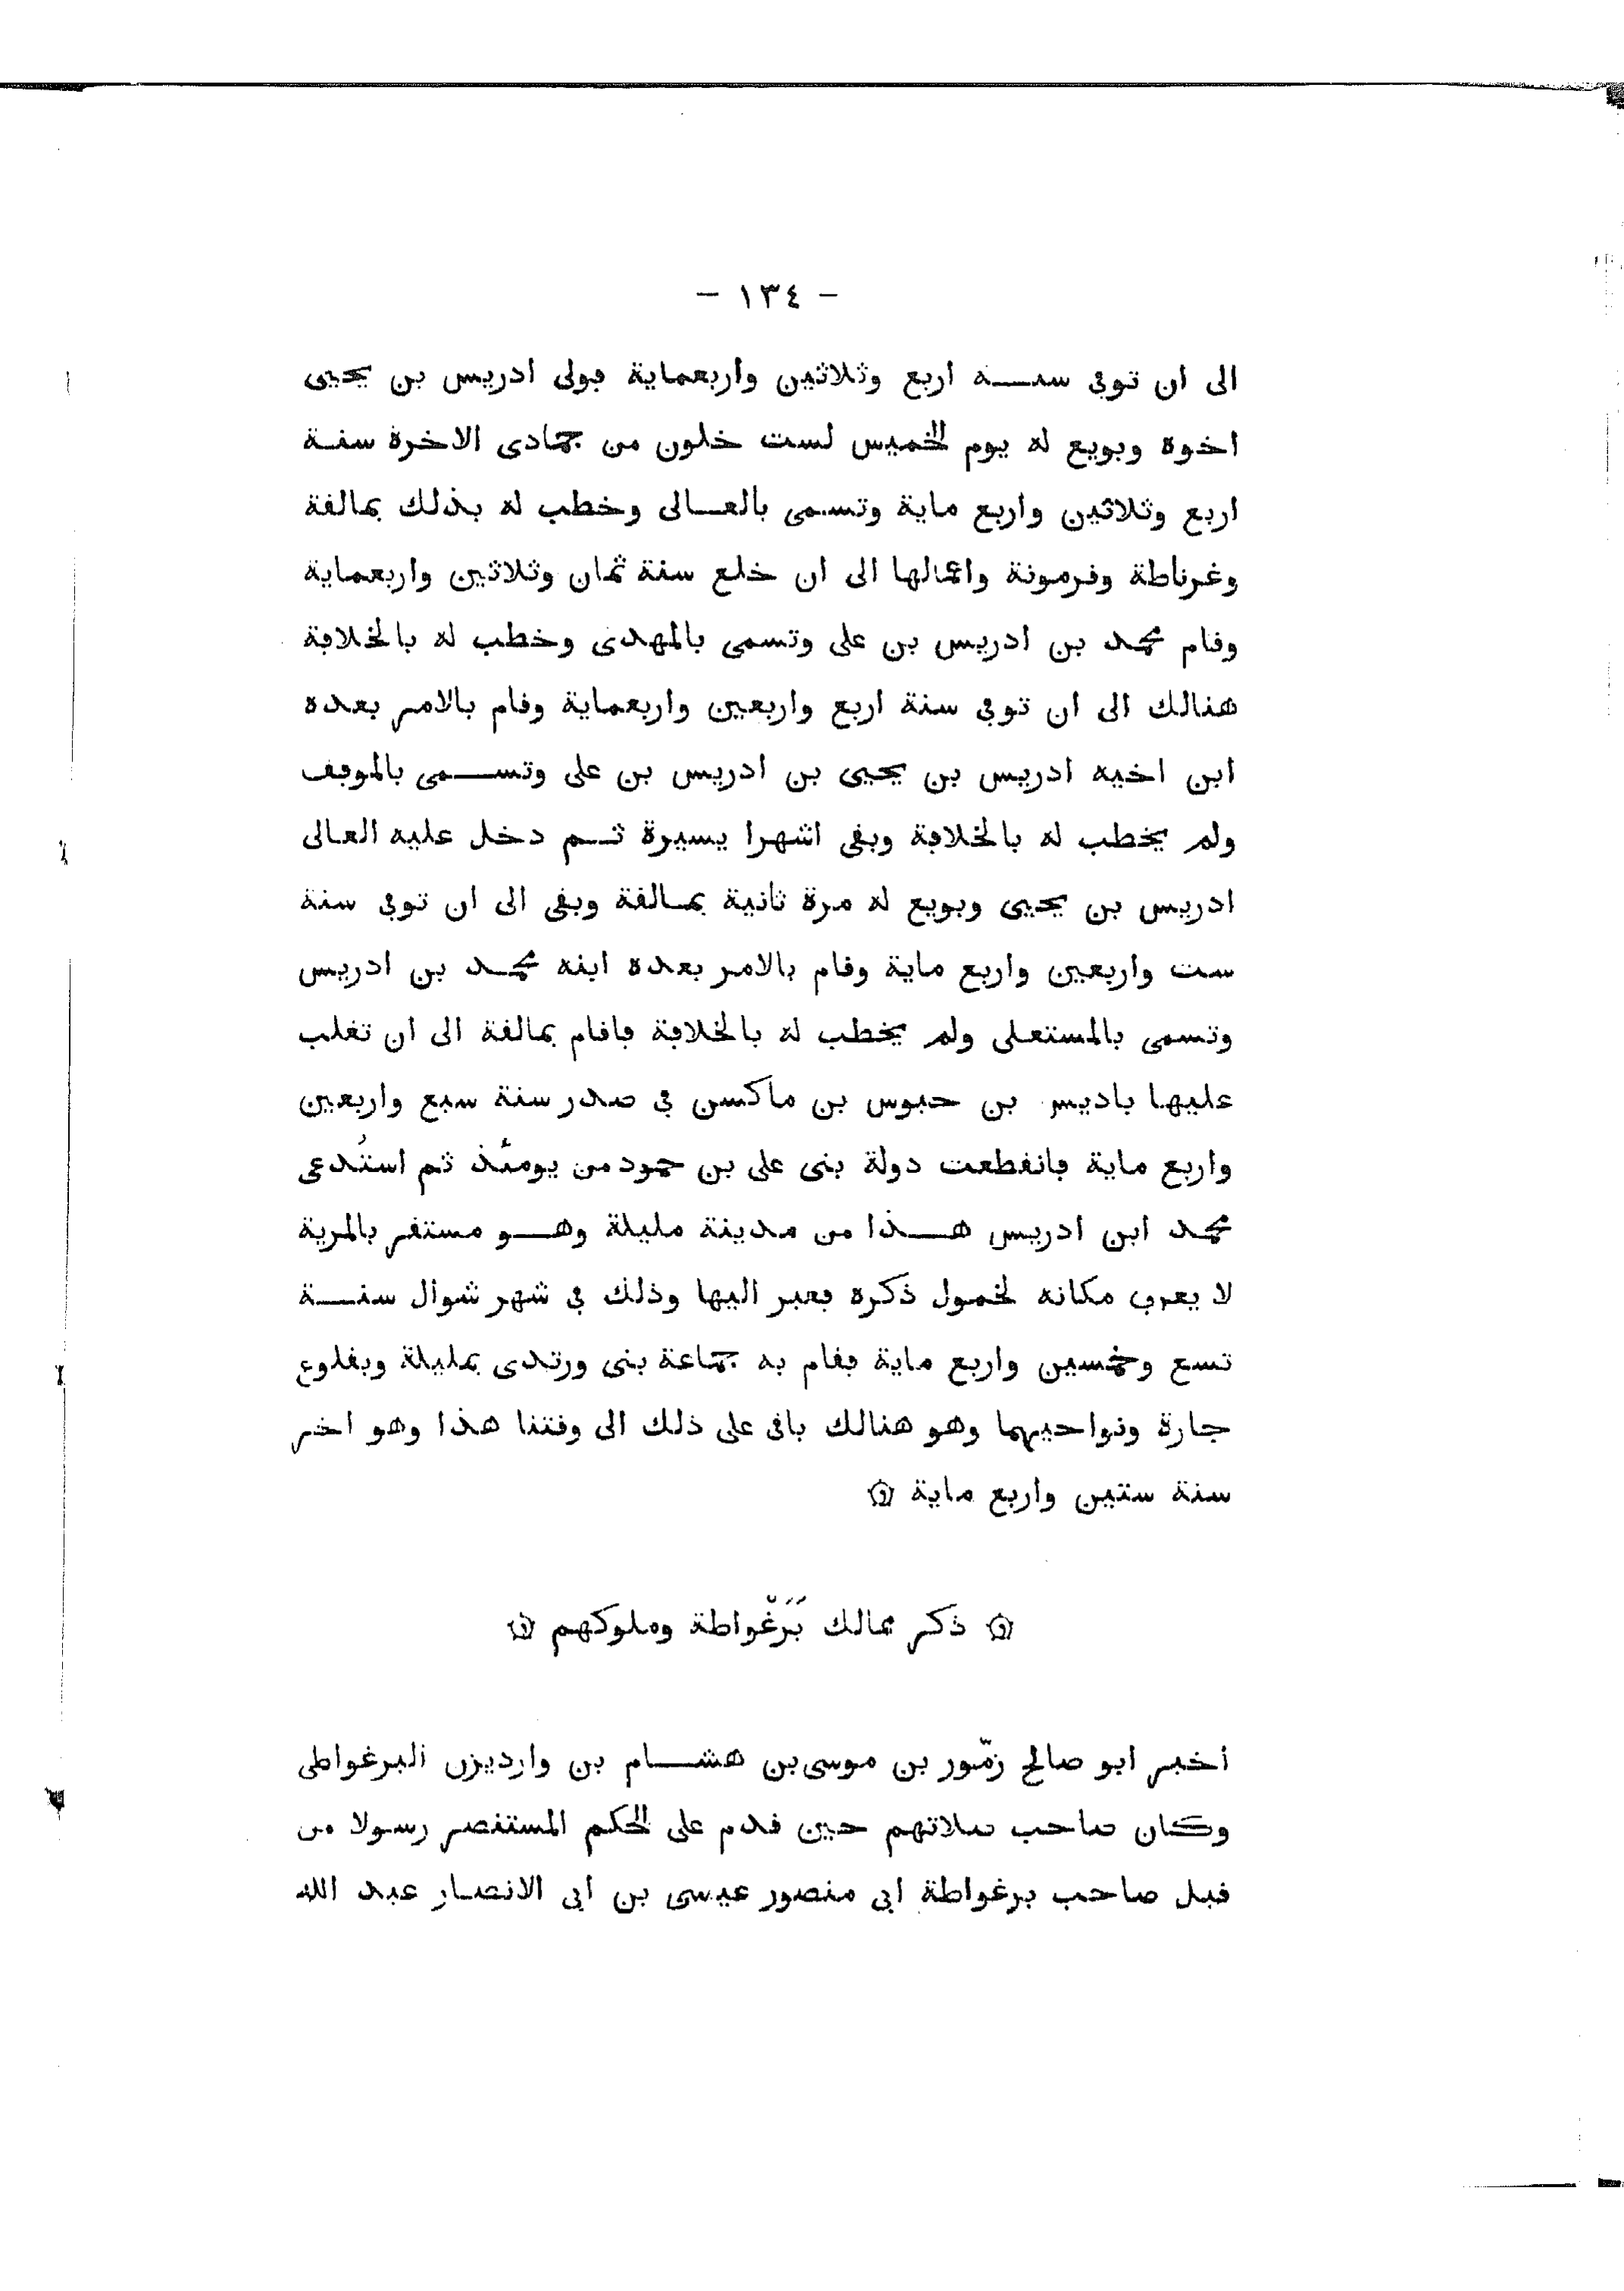 - ١٣٤ -
الى ان توفى سنة اربع وثلاثين واربعماية فولى ادريس بن يحيى
اخوه وبويع له يوم الخميس لست خلون من جمادى الاخرة سنة
اربع وثلاثين واربع ماية وتسمى بالعالى وخطب له بذلك بمالقة
وغرناطة وقرمونة واعمالها الى ان خلع سنة ثمان وثلاثين واربعماية
وقام محمد بن ادريس بن على وتسمى بالمهدى وخطب له بالخلافة
هنالك الى ان توفى سنة اربع واربعين واربعماية وقام بالامر بعده
ابن اخيه ادريس بن يحيى بن ادريس بن على وتسمى بالموفق
ولم يخطب له بالخلافة وبقى اشهرا يسيرة ثم دخل عليه العالى
ادريس بن يحيى وبويع له مرة ثانية بمالقة وبقى الى ان توفى سنة
ست واربعين واربع ماية وقام بالامر بعده ابنه محمد بن ادريس
وتسمى بالمستعلى ولم يخطب له بالخلافة فاقام بمالقة الى ان تغلب
عليها باديس بن حبوس بن ماكسن فى صدر سنة سبع واربعين
واربع ماية فانقطعت دولة بنى على بن حمود من يومئذ ثم استُدعى
محمد ابن ادريس هذا من مدينة مليلة وهو مستقر بالمرية
لا يعرف مكانه لخمول ذكره فعبر اليها وذلك فى شهر شوال سنة
تسع وخمسين واربع ماية فقام به جماعة بنى ورتدى بمليلة وبقلوع
جارة ونواحيهما وهو هنالك باق على ذلك الى وقتنا هذا وهو اخر
سنة ستين واربع ماية ۞
۞ ذكر ممالك بَرَغْواطة وملوكهم ۞
أخبر ابو صالح زمّور بن موسى بن هشام بن وارديزن البرغواطى
وكان صاحب صلاتهم حين قدم على الحكم المستنصر رسولا من
قبل صاحب برغواطة ابى منصور عيسى بن ابى الانصار عبد الله